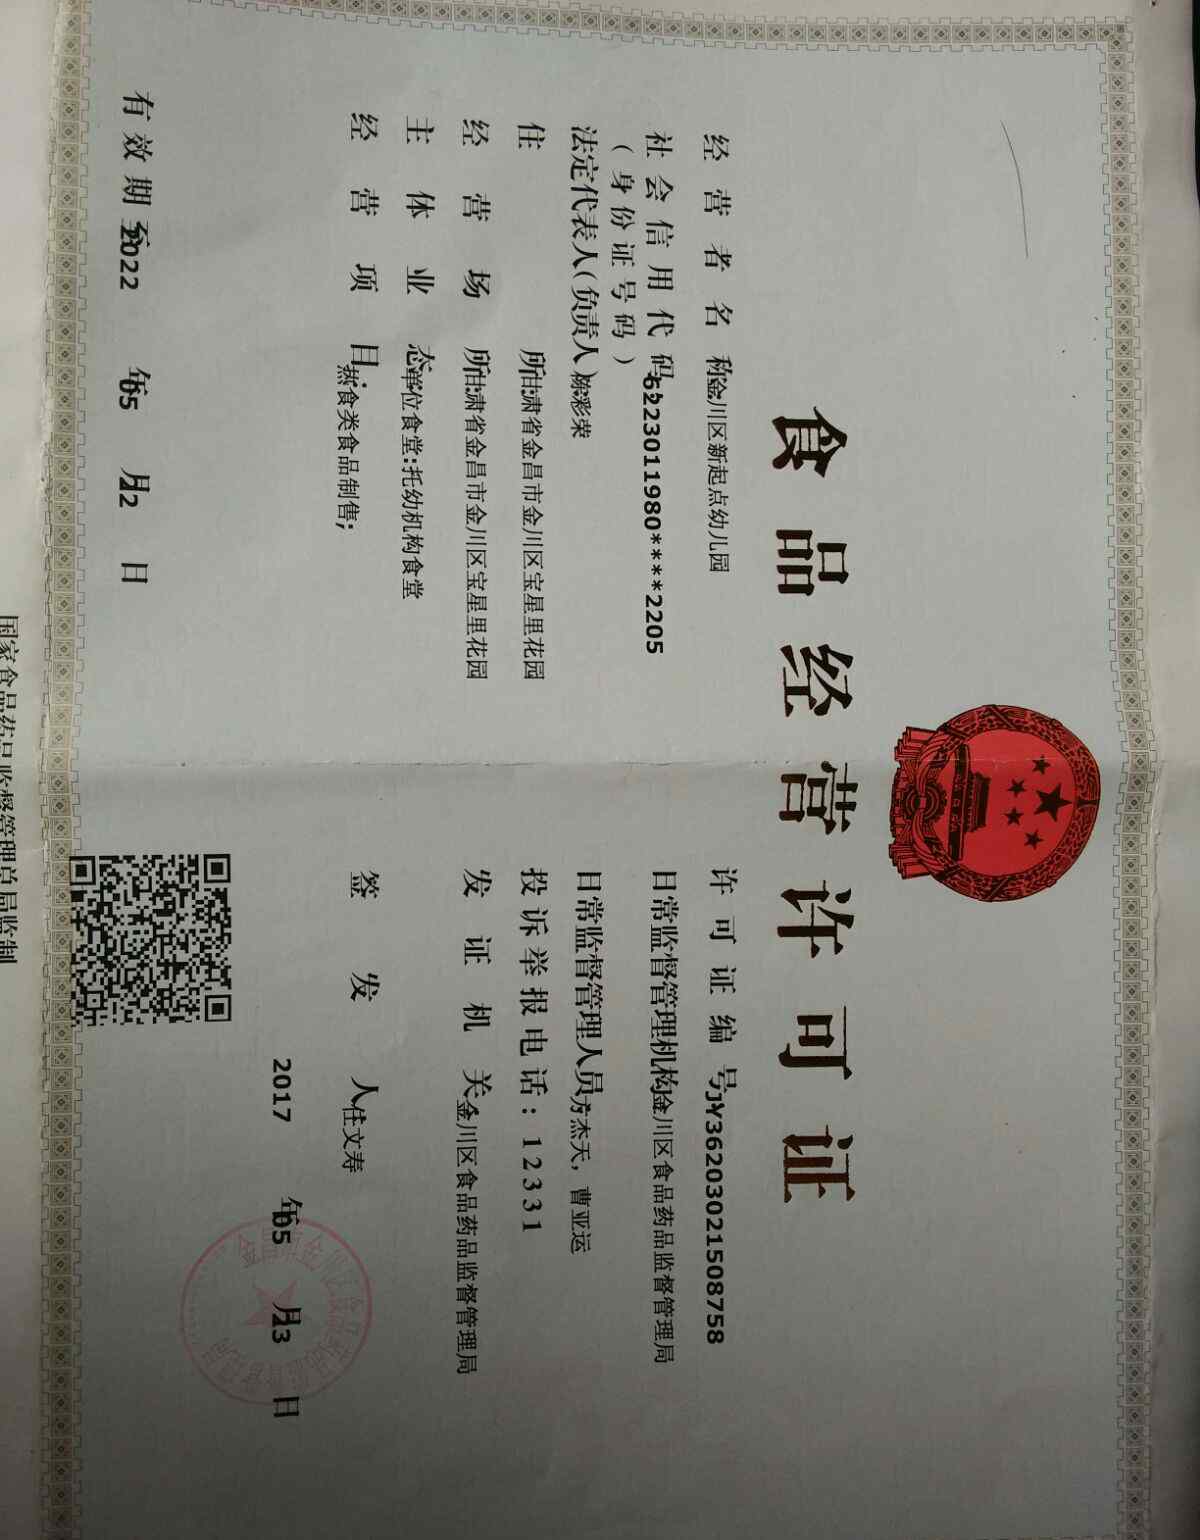 食品经营许可证
经营者名称：金川区新起点幼儿园
社会信用代码：6223011980****2205
（身份证号码）
法定代表人（负责人）：陈彩荣
住所：甘肃省金昌市金川区宝星里花园
经营场所：甘肃省金昌市金川区宝星里花园
主体业态：单位食堂：托幼机构食堂
经营项目：热食类食品制售；
有效期至2022年05月22日
许可证编号：JY36203021508758
日常监督管理机构：金川区食品药品监督管理局
日常监督管理人员：方杰天，曹亚运
投诉举报电话：12331
发证机关：金川区食品药品监督管理局
签发人：任文寿
2017年05月23日
国家食品药品监督管理总局监制